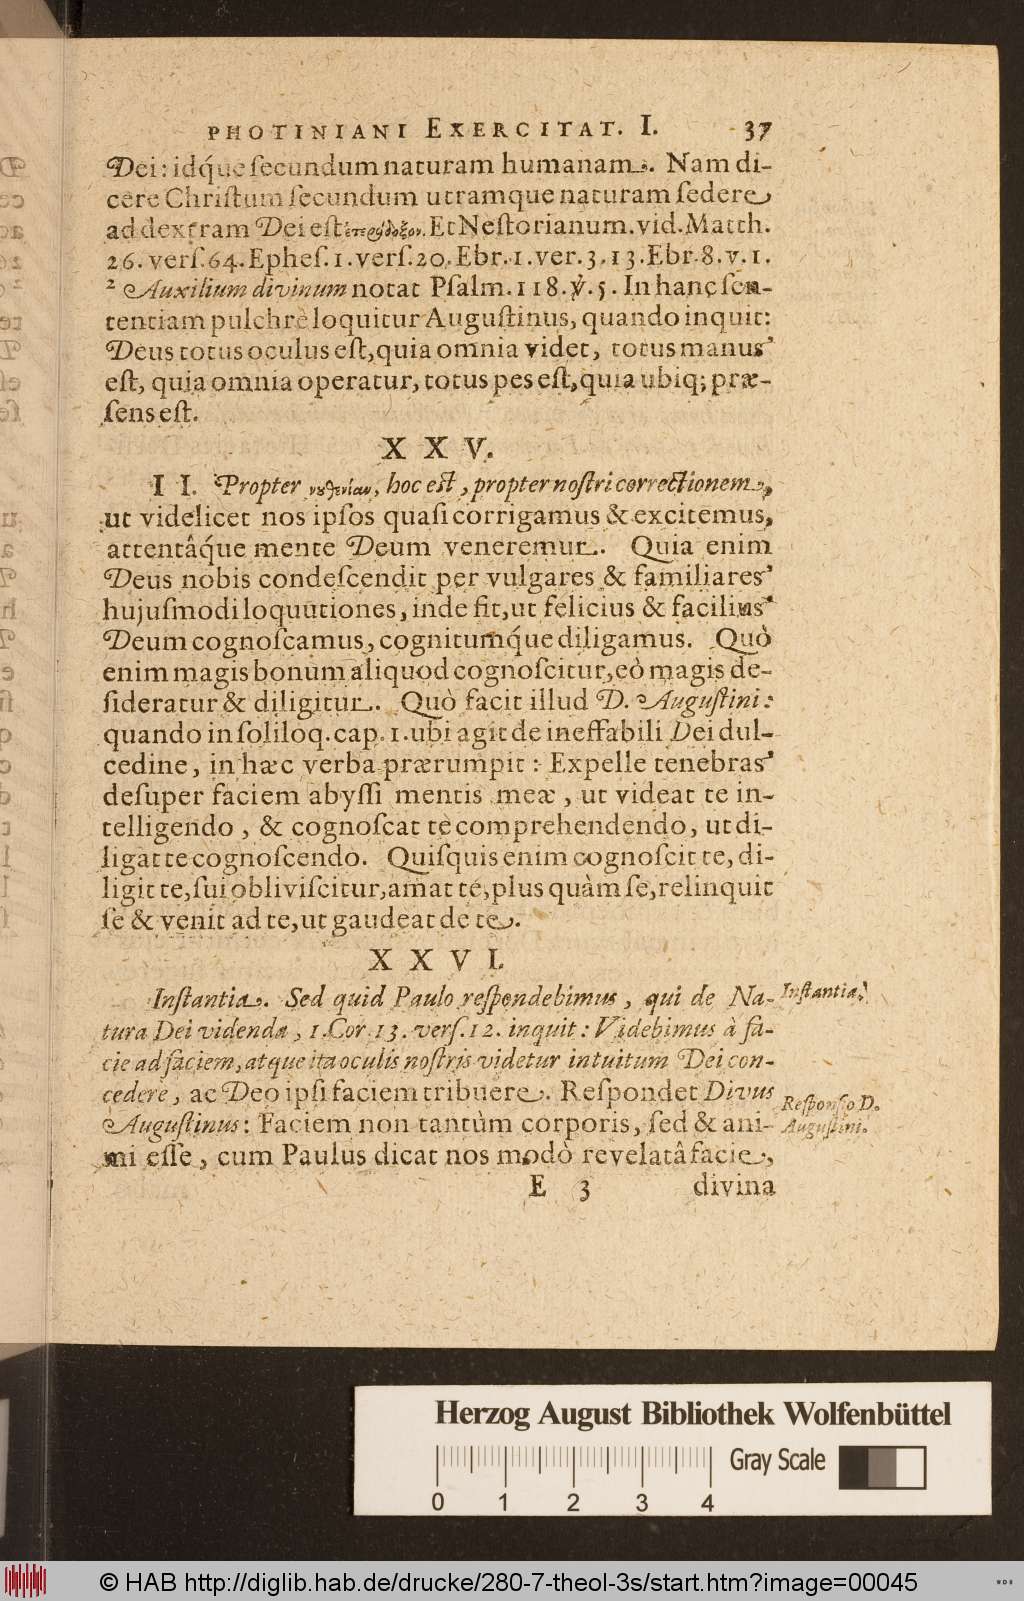 PHOTINIANI EXERCITAT. I. 37
Dei: idq́ue ſecundum naturam humanam. Nam di-
cere Chriſtum ſecundum utramque naturam ſedere
ad dextram Dei eſt ἑτερόδοξον. Et Neſtorianum. vid. Matth.
26. verſ. 64. Epheſ. 1. verſ. 20. Ebr. 1. ver. 3. 13. Ebr. 8. v. 1.
2 Auxilium divinum notat Pſalm. 118. ℣. 5. In hanc ſen-
tentiam pulchrè loquitur Auguſtinus, quando inquit:
Deus totus oculus eſt, quia omnia videt, totus manus
eſt, quia omnia operatur, totus pes eſt, quia ubiq; præ-
ſens eſt.
XXV.
II. Propter νουθεσίαν, hoc eſt, propter noſtri correctionem,
ut videlicet nos ipſos quaſi corrigamus & excitemus,
attentâq́ue mente Deum veneremur. Quia enim
Deus nobis condeſcendit per vulgares & familiares
hujuſmodi loquutiones, inde fit, ut felicius & facilius
Deum cognoſcamus, cognitumq́ue diligamus. Quò
enim magis bonum aliquod cognoſcitur, eò magis de-
ſideratur & diligitur. Quò facit illud D. Auguſtini:
quando in ſoliloq. cap. 1. ubi agit de ineffabili Dei dul-
cedine, in hæc verba prærumpit: Expelle tenebras
deſuper faciem abyſſi mentis meæ, ut videat te in-
telligendo, & cognoſcat te comprehendendo, ut di-
ligat te cognoſcendo. Quiſquis enim cognoſcit te, di-
ligit te, ſui obliviſcitur, amat te, plus quàm ſe, relinquit
ſe & venit ad te, ut gaudeat de te.
XXVI.
Inſtantia. Sed quid Paulo reſpondebimus, qui de Na-
Inſtantia.
tura Dei videnda, 1. Cor. 13. verſ. 12. inquit: Videbimus à fa-
cie ad faciem, atque ita oculis noſtris videtur intuitum Dei con-
cedere, ac Deo ipſi faciem tribuere. Reſpondet Divus
Reſponſo D.
Auguſtinus: Faciem non tantùm corporis, ſed & ani-
Auguſtini.
mi eſſe, cum Paulus dicat nos modò revelatâ facie,
E 3 divina
Herzog August Bibliothek Wolfenbüttel
Gray Scale
0 1 2 3 4
© HAB http://diglib.hab.de/drucke/280-7-theol-3s/start.htm?image=00045